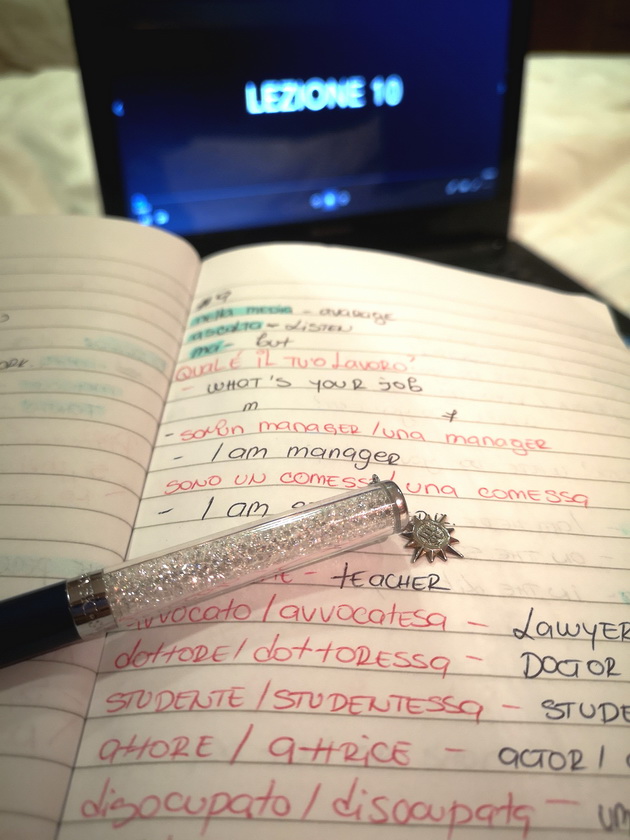 LEZIONE 10
#9
nella media - avarage
ascolta - Listen
ma - but
QUAL È IL TUO LAVORO?
- WHAT'S YOUR JOB
m f
- SONO un manager / una manager
- I am manager
SONO UN COMESSO / una comessa
- I am
- teacher
avvocato / avvocatesa - Lawyer
dottore / dottoressa - DOCTOR
STUDENTE / STUDENTESSa - STUDE
attore / attrice - actor /
disocupato / disocupata - um
ORK.